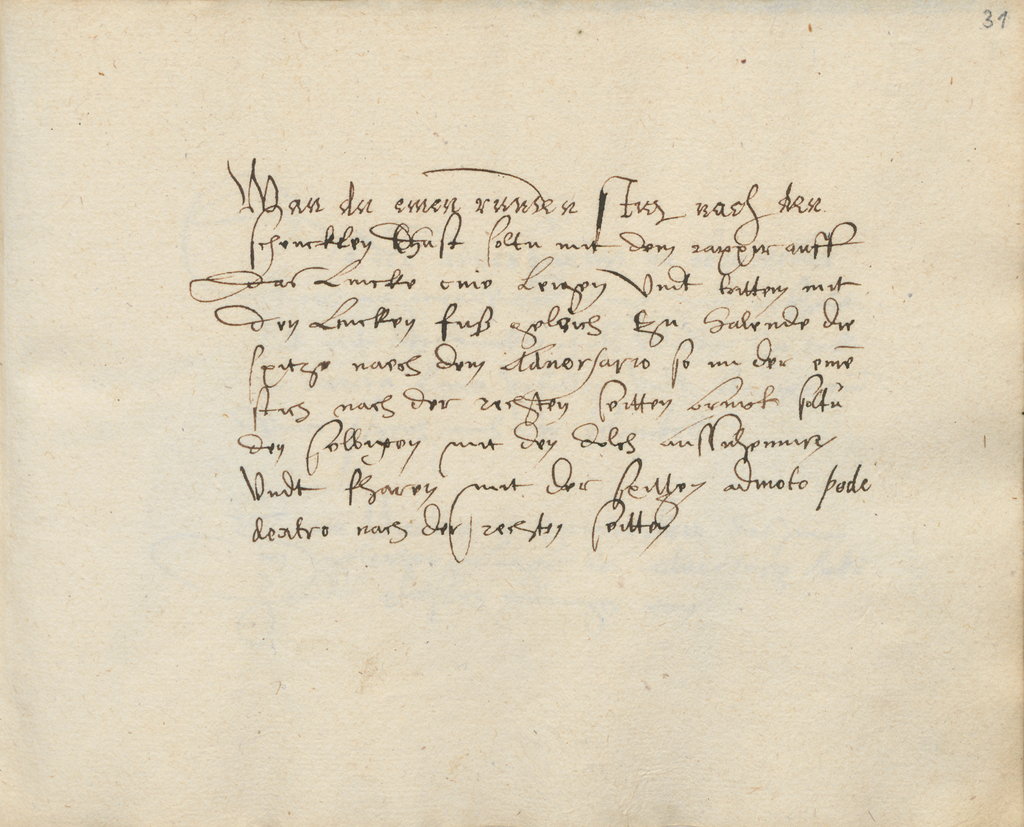 31
Wan du einen runden stich nach den
schencklen thust soltu mit dem rappir auff
das Lincke cnie leigen Vndt tritten mit
den Lincken fuß gleich Zu Halende die
spitze naech dem Aduersario so nu der eine
stich nach der rechsten seitten bringt soltu
den selbigen mit den dolch außnhemmen
Vndt fharen mit der spitzen admoto pede
dextro nach der rechten seitten